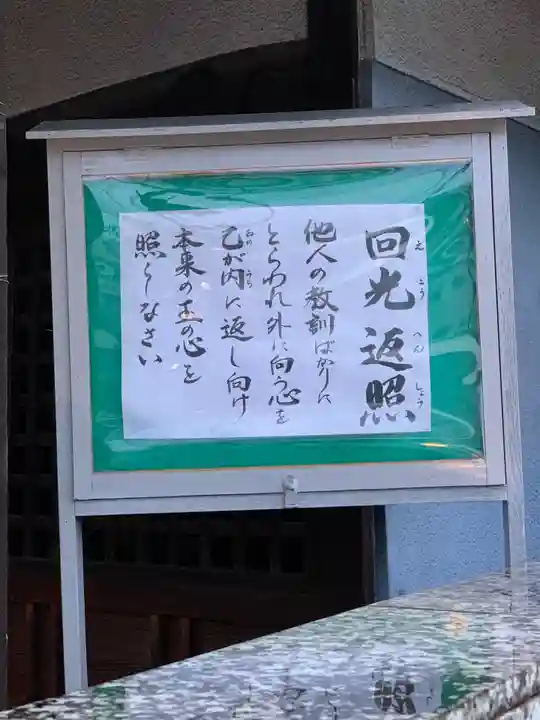 回光返照
えこうへんしょう
他人の教訓ばかりに
とらわれ外に向う心を
己が内に返し向け
おの うち
本来の玉の心を
照らしなさい